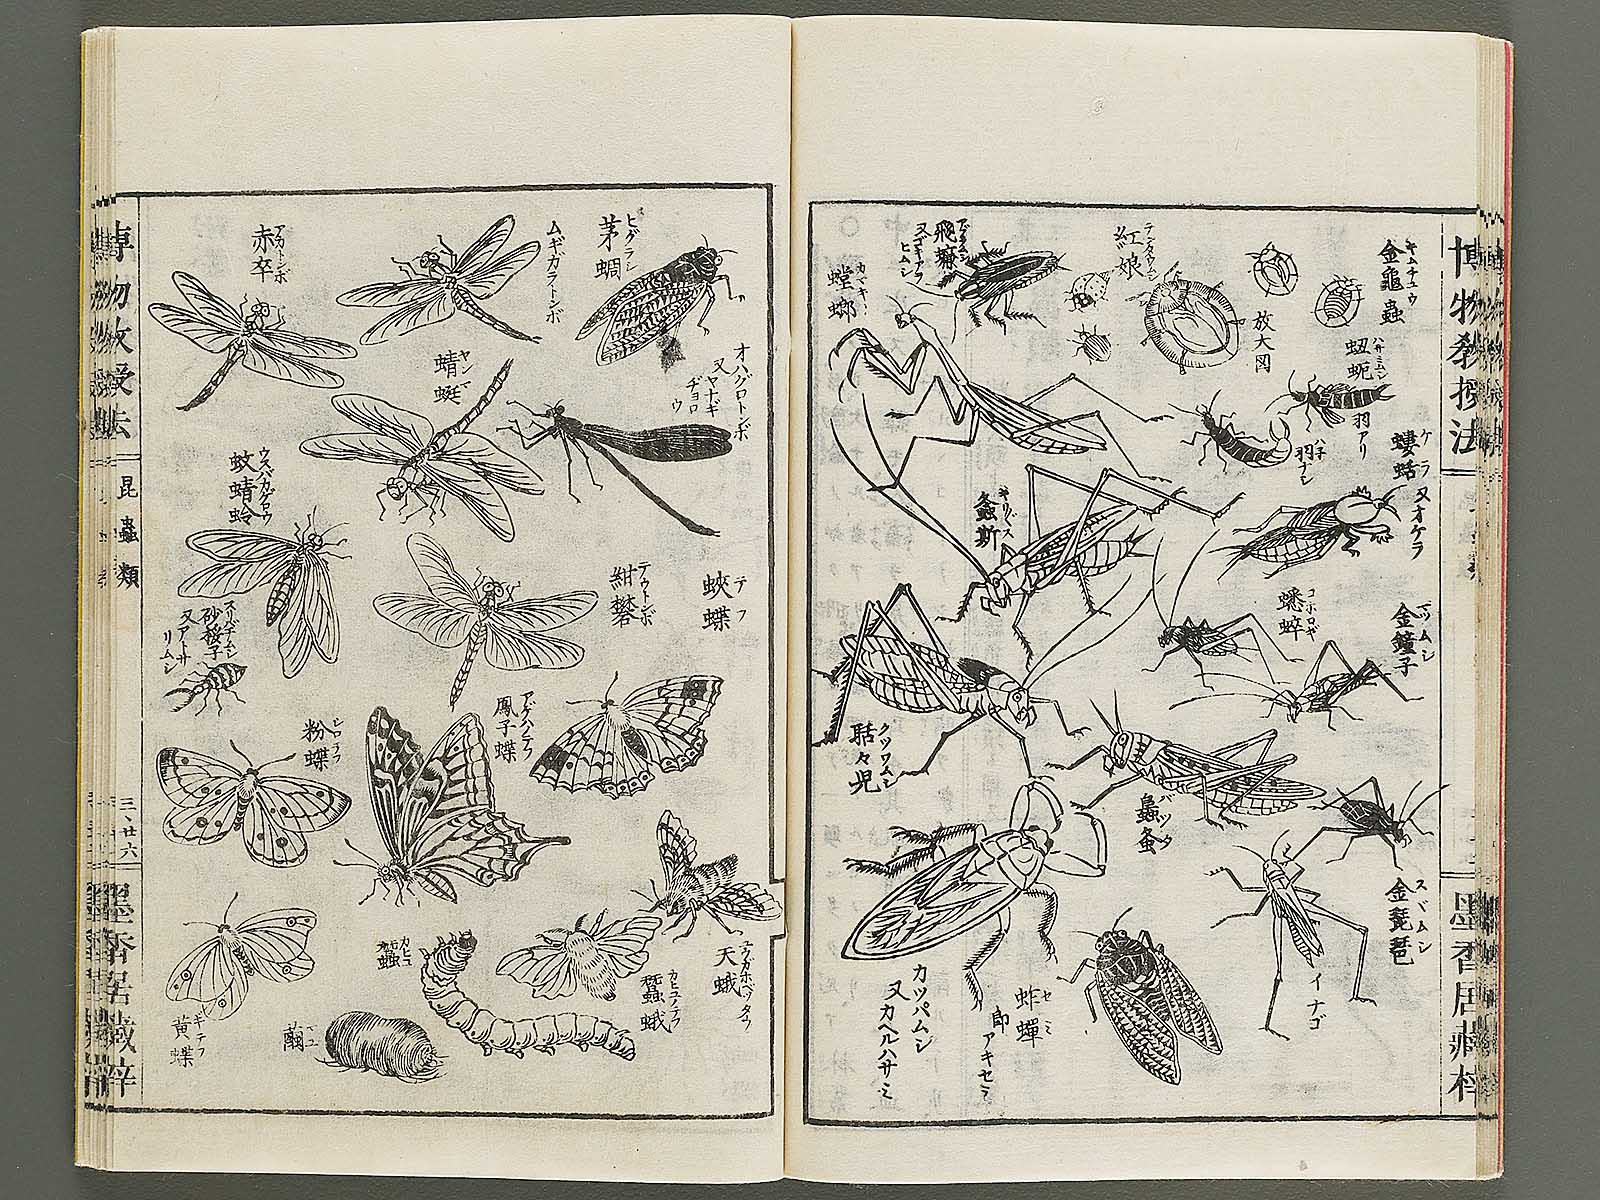 博物教授法
墨香居蔵梓
キムチユウ
金龜蟲
放大図
テンタウムシ
紅娘
飛蠊
又ゴキアラヒムシ
カマキリ
螳螂
ハサミムシ
羽アリ
羽ナシ
ケラ
螻蛄
又オケラ
キリギス
螽斯
コホロギ
蟋蟀
マツムシ
金鐘子
クツワムシ
聒々児
バツタ
スズムシ
金琵琶
イナゴ
セミ
蚱蟬
即アキセミ
カツパムシ
又カヘルハサミ
ヒグラシ
茅蜩
ムギカラトンボ
アカトンボ
赤卒
オハグロトンボ
又ヤナギヂヨロウ
ヤンマ
蜻蜓
ウスバカゲロウ
蚊蜻蛉
テフ
蛺蝶
テウトンボ
紺礬
スリバチムシ
砂挼子
又アトサリムシ
アゲハノテフ
鳳子蝶
シロテフ
粉蝶
ユウカホベツタウ
天蛾
カヒコノテフ
蠶蛾
カヒコ
蠶
マユ
繭
キテフ
黄蝶
博物教授法
昆蟲類
三、廿六
墨香居蔵梓